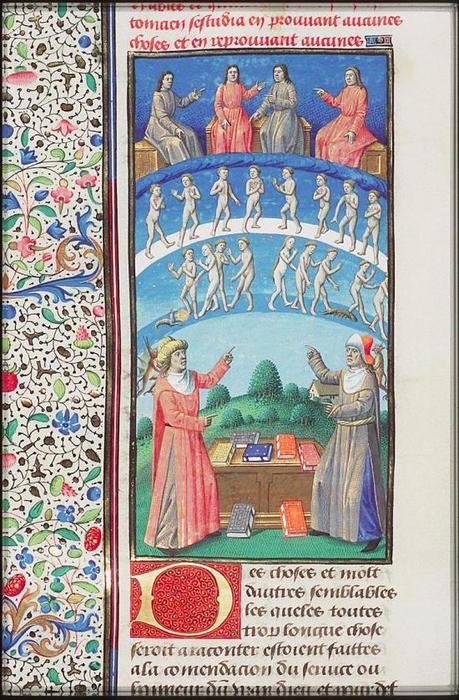 tomcien sestudia en prouuant aucunes
choses et en reprouuant aucunes
Des choses et molt
dautres semblables
les queles toutes
trop longue chose
seroit a raconter estoient faittes
a la comendacion du seruice ou